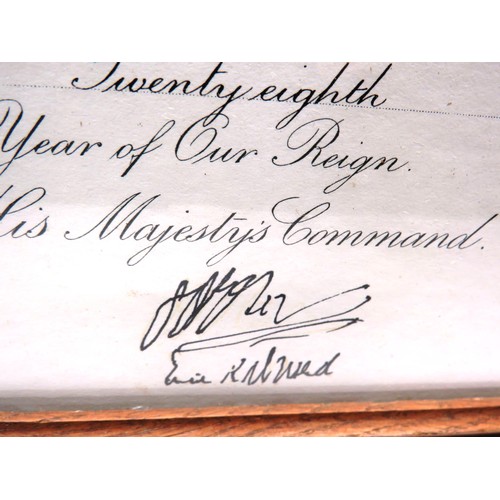 Twenty eighth
Year of Our Reign.
His Majesty's Command.